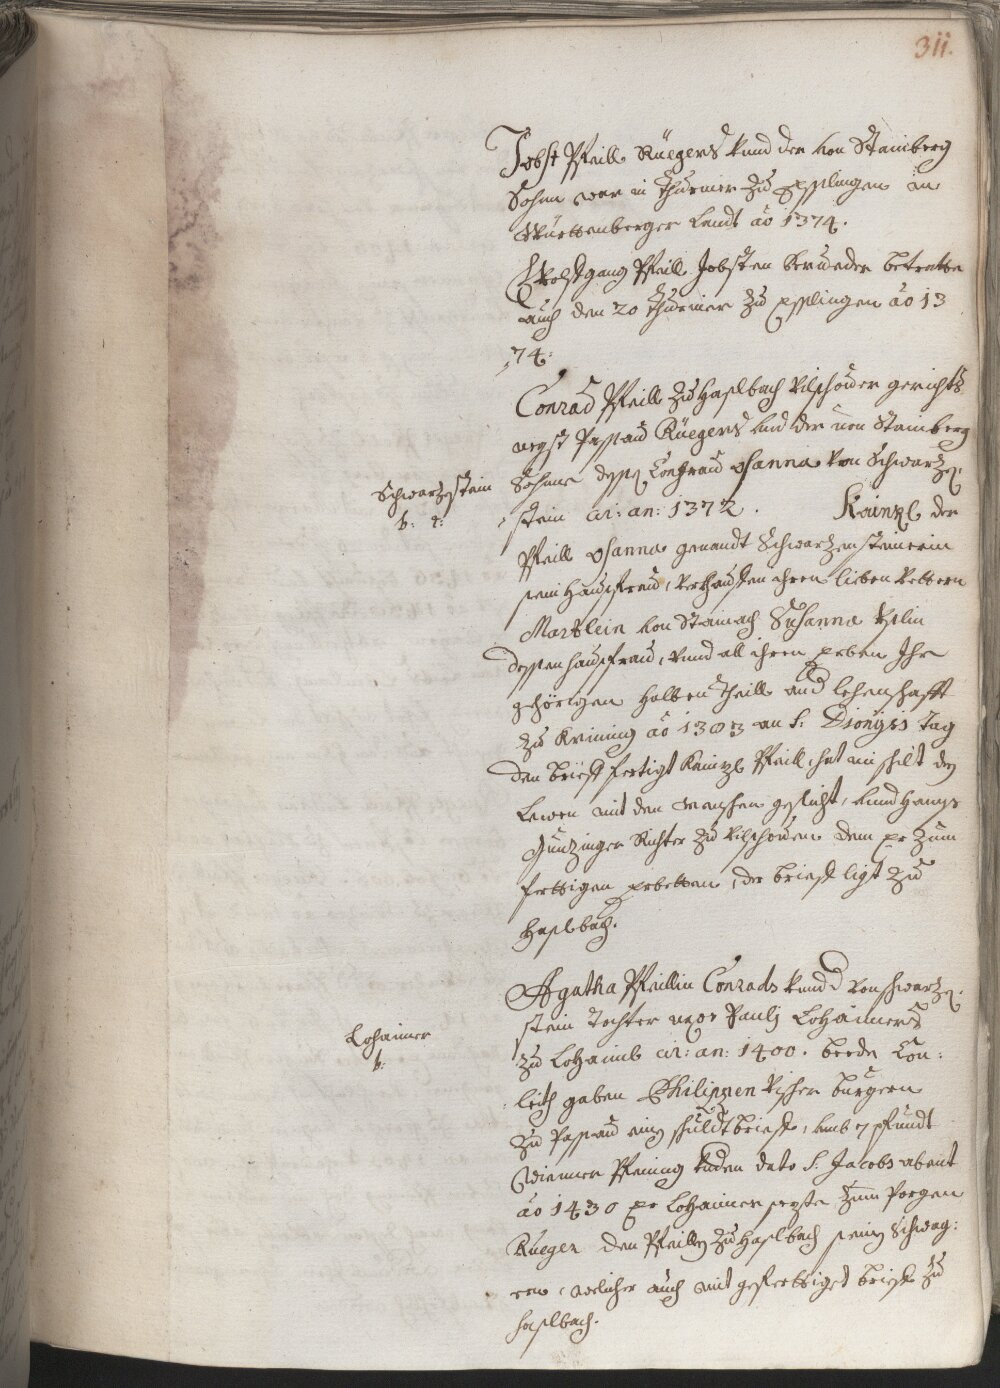 311.
Jobst Pfeill Rüegers vnnd der von Stainberg
Sohnn war in Thurnier zu Esslingen im
Württenberger Landt ao 1374.
Wolfgang Pfeill Jobsten brueder betratte
auch den 20 Thurnier zu Esslingen ao 13
74:
Conrad Pfeill zu Haslbach Vilshouer gerichts
negst Passau Rüegers vnd der von Stainberg
Schwarzstain
Sohne dessen Congraud Osanna von Schwarzen:
b: e:
stain cir: an: 1372. Kainzl der
Pfeill Osanna genandt Schwarzensteinerin
sein Hausfrau, verkhauften ihren lieben Vettern
Marklein von Stainach Susanna
dessen hausfrau, vnnd all ihren erben Ihr
gehörigen halben Theill vnd lehenschafft
zu Krining ao 1303 an S: Dionysi Tag
den brieff fertigt Kainzl Pfeill, hat im schilt den
Lewen mit den menschen gesicht, vnnd Hanns
Günzinger Richter zu Vilshouen dem er zum
fertigen erbetten, der brieff ligt zu
Haslbach.
Agatha Pfeillin Conrads vnnd d von schwarzen:
stein Tochter uxor Paulj Lohaimers
Lohaimer
zu Lohaimb cir: an: 1400. beede Con:
b:
leith gaben Philippen Visher burgern
zu Passau ein schuldtbrieff, vmb 7 Pfundt
Wienner Pfening dato S: Jacobs abent
ao 1430 er Lohaimer sezte zum Porgen
Rueger den Pfeilln zu Haslbach sein Schwag:
ern, welicher auch mit gefertiget brieff zu
haslbach.